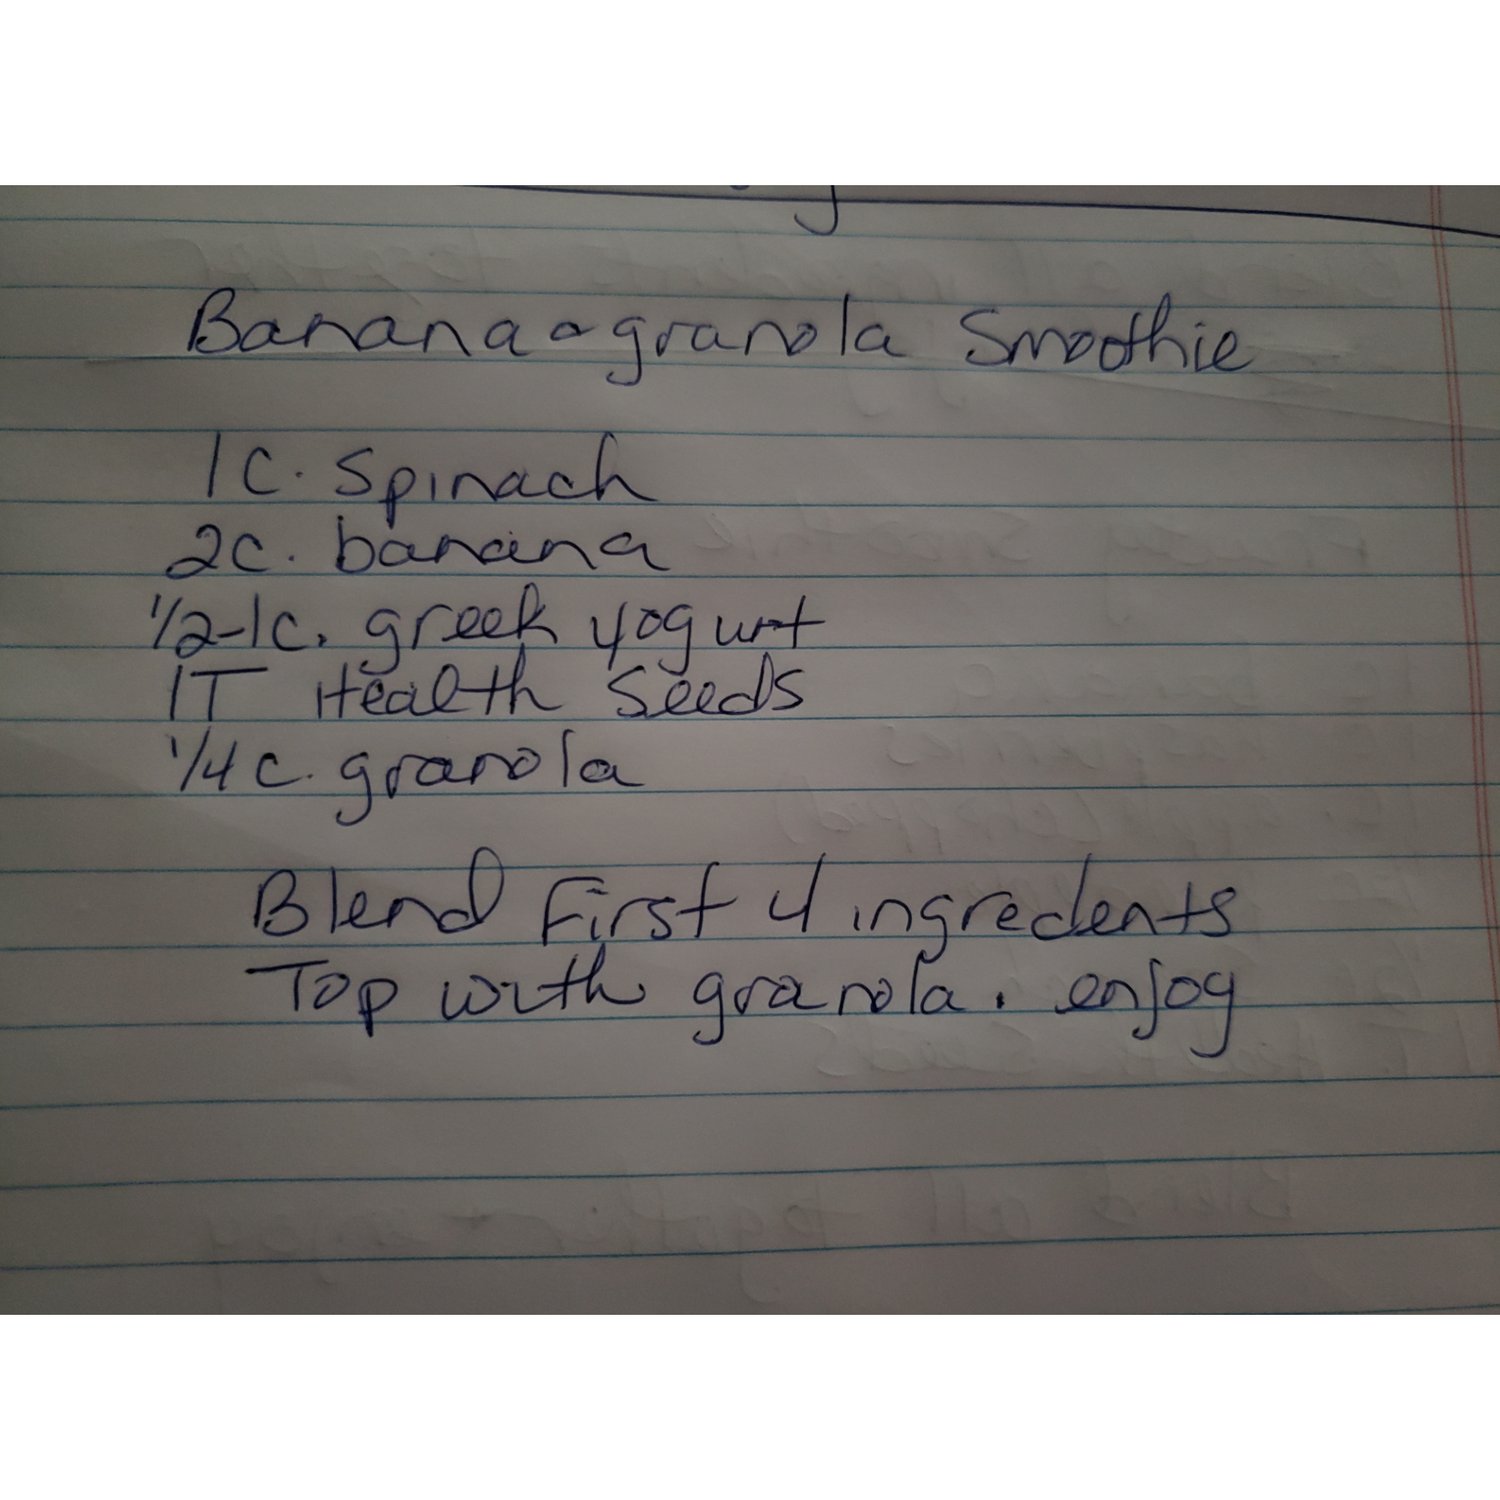 Banana & granola Smoothie
1C. Spinach
2C. banana
1/2-1C. greek yogurt
1T Health Seeds
1/4 C. granola
Blend First 4 ingredents
Top with granola. enjoy